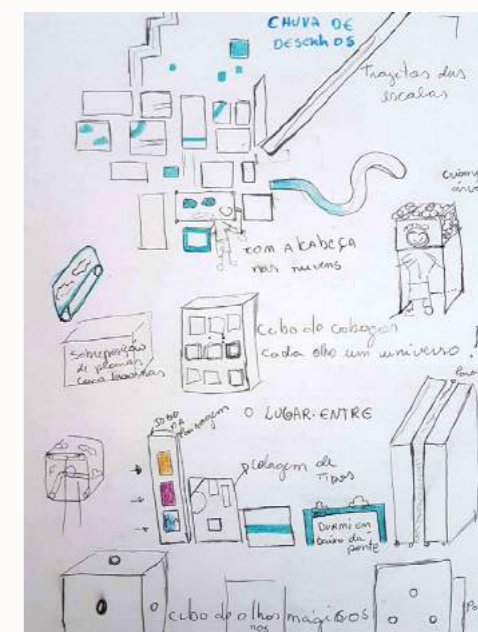 CHUVA DE
DESENHOS
Trajetos das
escalas
COM A KABEÇA
nas nuvens
Sobreposição
de planos
cubo de colagens
cada olho um universo!
O LUGAR-ENTRE
JOGO
DA
Paisagem
colagem de
Tipos
DORMI EM
baixo da
ponte
cubo de olhos mágicos